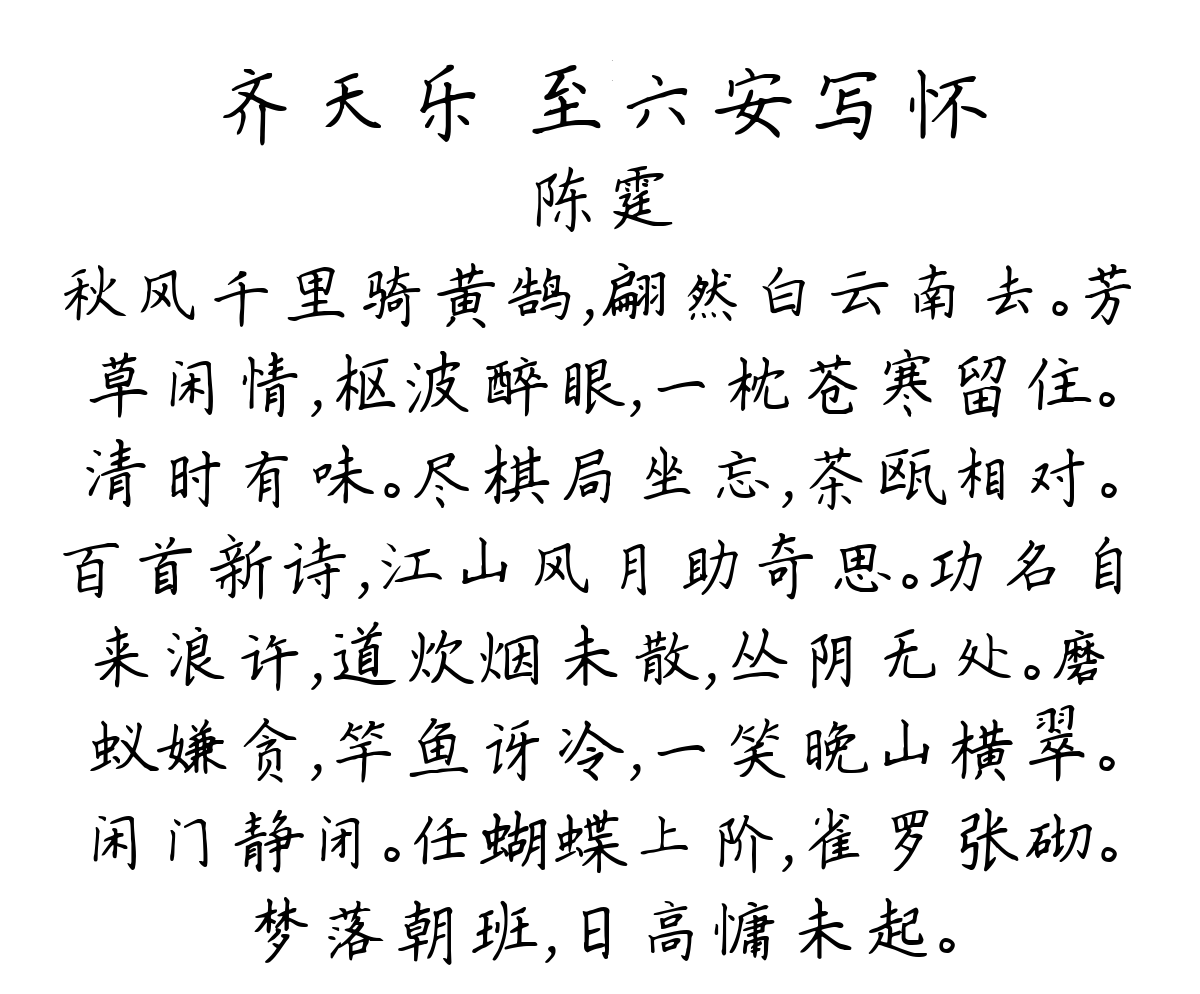 齐天乐 至六安写怀
陈霆
秋风千里骑黄鹄,翩然白云南去。芳
草闲情,枢波醉眼,一枕苍寒留住。
清时有味。尽棋局坐忘,茶瓯相对。
百首新诗,江山风月助奇思。功名自
来浪许,道炊烟未散,丛阴无处。磨
蚁嫌贪,竿鱼讶冷,一笑晚山横翠。
闲门静闭。任蝴蝶上阶,雀罗张砌。
梦落朝班,日高慵未起。